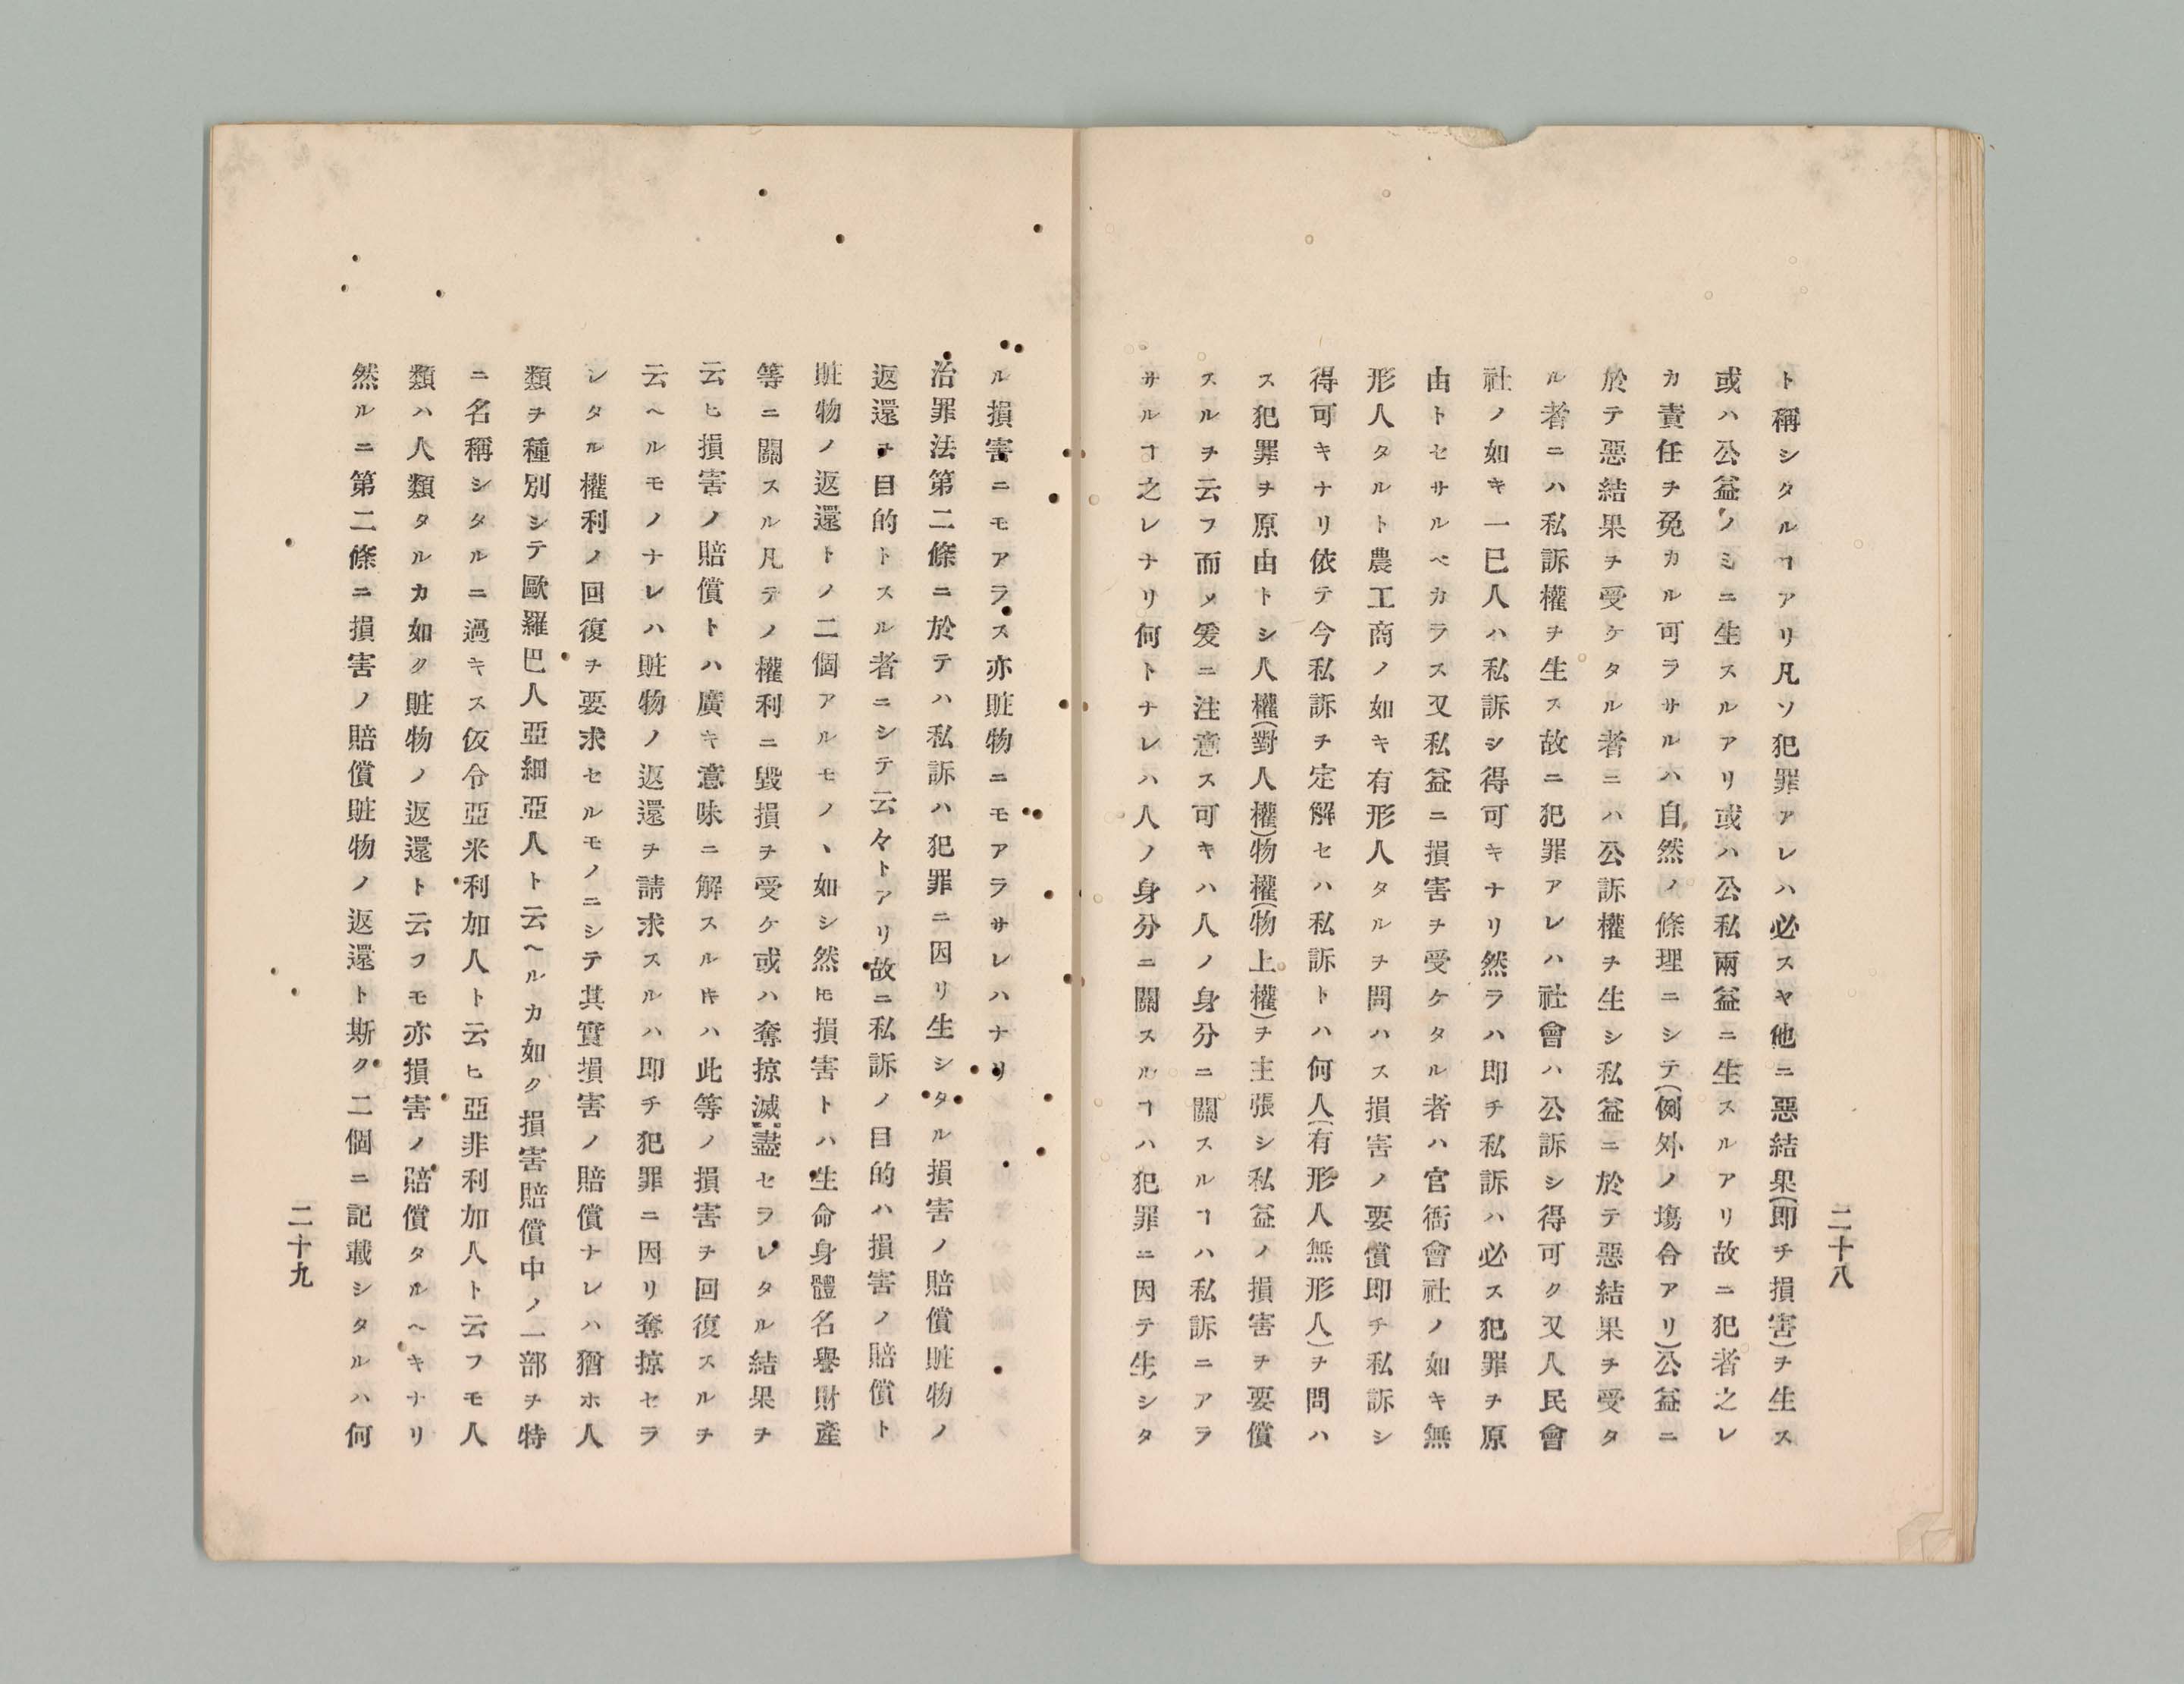 二十八
ト稱シタルヿアリ凡ソ犯罪アレハ必スヤ他ニ惡結果(即チ損害)ヲ生ス
或ハ公益ノミニ生スルアリ或ハ公私兩益ニ生スルアリ故ニ犯者之レ
カ責任ヲ免カル可ラサルハ自然ノ條理ニシテ(例外ノ塲合アリ)公益ニ
於テ惡結果ヲ受ケタル者ニハ公訴權ヲ生シ私益ニ於テ惡結果ヲ受タ
ル者ニハ私訴權ヲ生ス故ニ犯罪アレハ社會ハ公訴シ得可ク又人民會
社ノ如キ一已人ハ私訴シ得可キナリ然ラハ即チ私訴ハ必ス犯罪ヲ原
由トセサルベカラス又私益ニ損害ヲ受ケタル者ハ官衙會社ノ如キ無
形人タルト農工商ノ如キ有形人タルヲ問ハス損害ノ要償即チ私訴シ
得可キナリ依テ今私訴ヲ定解セハ私訴トハ何人(有形人無形人)ヲ問ハ
ス犯罪ヲ原由トシ人權(對人權)物權(物上權)ヲ主張シ私益ノ損害ヲ要償
スルヲ云フ而メ爰ニ注意ス可キハ人ノ身分ニ關スルヿハ私訴ニアラ
サルヿ之レナリ何トナレハ人ノ身分ニ關スルヿハ犯罪ニ因テ生シタ
ル損害ニモアラス亦賍物ニモアラサレハナリ
治罪法第二條ニ於テハ私訴ハ犯罪ニ因リ生シタル損害ノ賠償賍物ノ
返還ヲ目的トスル者ニシテ云々トアリ故ニ私訴ノ目的ハ損害ノ賠償ト
賍物ノ返還トノ二個アルモノヽ如シ然𪜈損害トハ生命身體名譽財產
等ニ關スル凡テノ權利ニ毀損ヲ受ケ或ハ奪掠滅盡セラレタル結果ヲ
云ヒ損害ノ賠償トハ廣キ意味ニ解スル𪜈ハ此等ノ損害ヲ回復スルヲ
云ヘルモノナレハ賍物ノ返還ヲ請求スルハ即チ犯罪ニ因リ奪掠セラ
レタル權利ノ回復ヲ要求セルモノニシテ其實損害ノ賠償ナレハ猶ホ人
類ヲ種別シテ歐羅巴人亞細亞人ト云ヘルカ如ク損害賠償中ノ一部ヲ特
ニ名稱シタルニ過キス仮令亞米利加人ト云ヒ亞非利加人ト云フモ人
類ハ人類タルカ如ク賍物ノ返還ト云フモ亦損害ノ賠償タルヘキナリ
然ルニ第二條ニ損害ノ賠償賍物ノ返還ト斯ク二個ニ記載シタルハ何
二十九